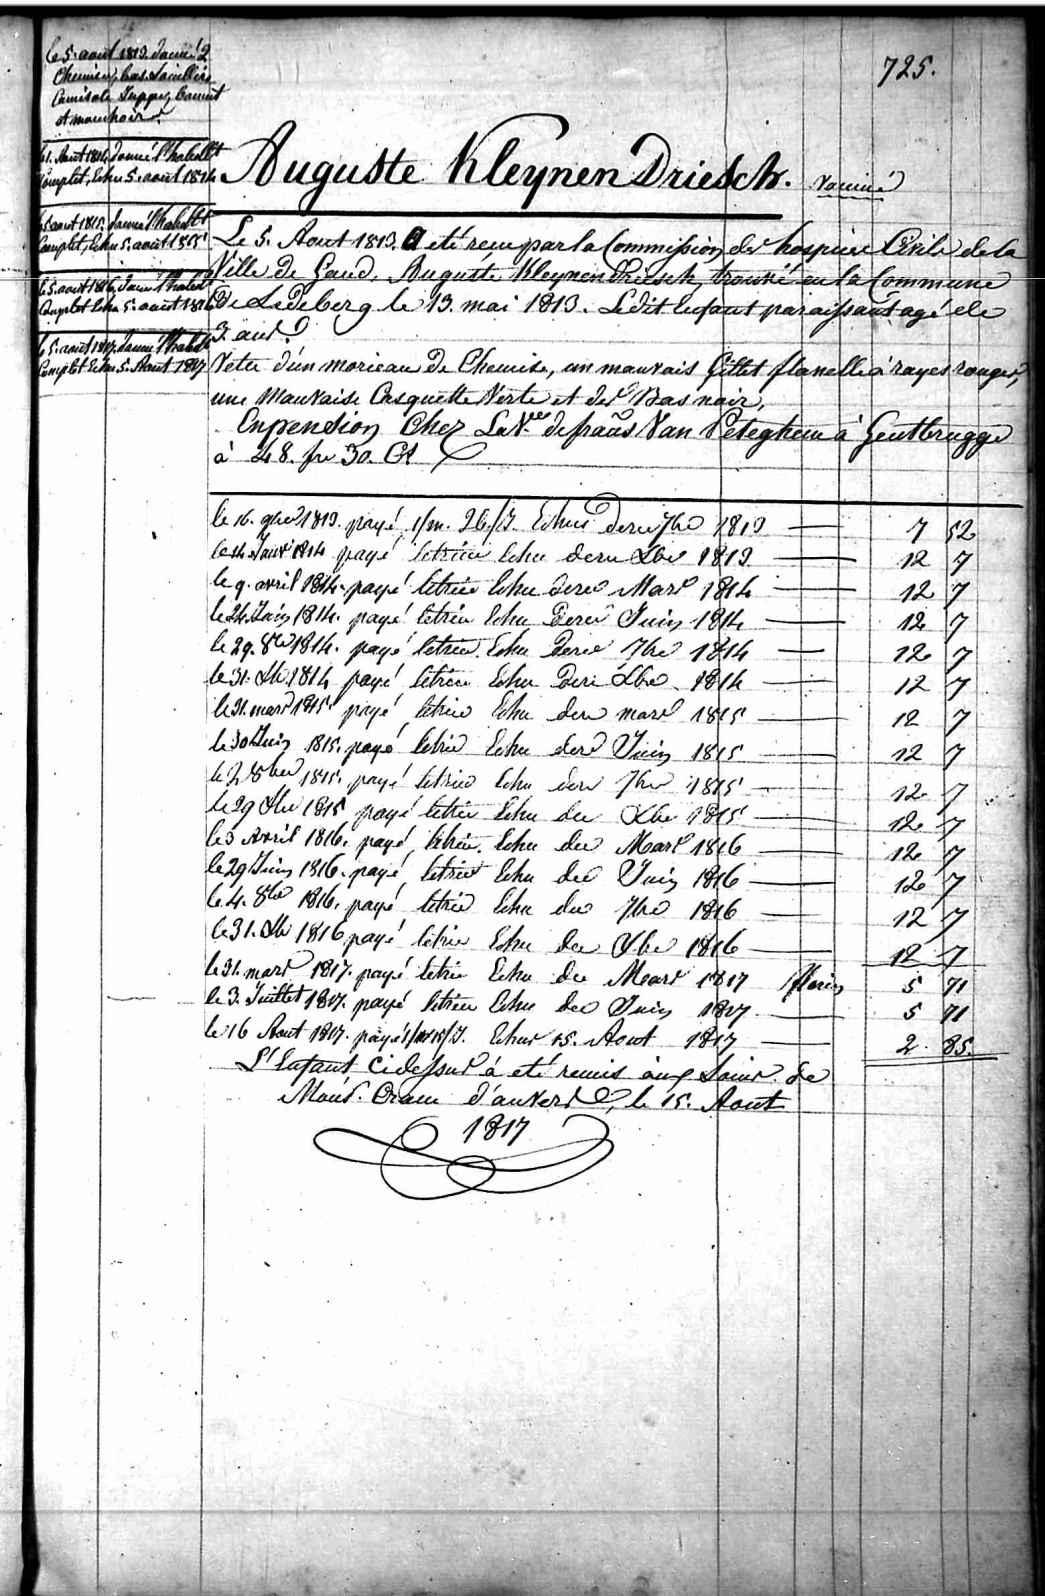 le 5. aout 1813. donné 2
Chemises, bas, Souliers
Camisole Juppes, bonnet
et mouchoir.
Aout 1814. donné l'habillt
Complet, Echu 5. aout 1814
5 aout 1815. donné l'habillt
Complet, Echu 5. aout 1815
le 5. aout 1816. donné l'habillt
Complet Echu 5. aout 1816
le 5. aout 1817. donné l'habillt
Complet Echu 5. Aout 1817
725.
Auguste Kleynen Driesch. Vacciné
Le 5. Aout 1813. a eté reçu par la Commission des hospices Civils de la
Ville de Gand, Auguste Kleynen Driesch, trouvé en la Commune
De Ledeberg le 13. mai 1813. Ledit Enfant paraissant agé de
3 ans.
Vetu d'un morceau de Chemise, un mauvais Gillet flanelle à rayes rouges,
une Mauvaise Casquette Verte et des Bas noir,
En pension Chez La Ve. de frans Van Peteghem à Gentbrugge
à 48. fr 30. Ct
le 16. 9bre 1813. payé 1/m. 26/J. Echus dere 7bre 1813 7 52
le 14 Janvr 1814 payé letrier Echu dere Xbre 1813. 12 7
le 9. avril 1814. payé letrier Echu dere Mars 1814 12 7
le 24 Juin 1814. payé letrier Echu Dere Juin 1814 12 7
le 29. 8bre 1814. payé letrier. Echu Dere 7bre 1814 12 7
le 31. Xbre 1814 payé letrier Echu Dere Xbre 1814 12 7
le 31. mars 1815 payé letrier Echu dere mars 1815 12 7
le 30 Juin 1815. payé letrier Echu dere Juin 1815 12 7
le 2 8bre 1815. payé letrier Echu dere 7bre 1815 12 7
le 29 Xbre 1815 payé letrier Echu de Xbre 1815 12 7
le 3 Avril 1816. payé letrier. Echu de Mars 1816 12 7
le 29 Juin 1816. payé letrier Echu de Juin 1816 12 7
le 4. 8bre 1816. payé letrier Echu de 7bre 1816 12 7
le 31. Xbre 1816 payé letrier Echu de Xbre 1816 12 7
le 31. mars 1817. payé letrier Echu de Mars 1817 florins 5 71
le 3. Juillet 1817. payé letrier Echu de Juin 1817. 5 71
le 16 Aout 1817. payé 1/m 15/J. Echus 15. Aout 1817 2 85.
L'Enfant cidessus à eté remis aux de
d'anvers, le 15. Aout
1817